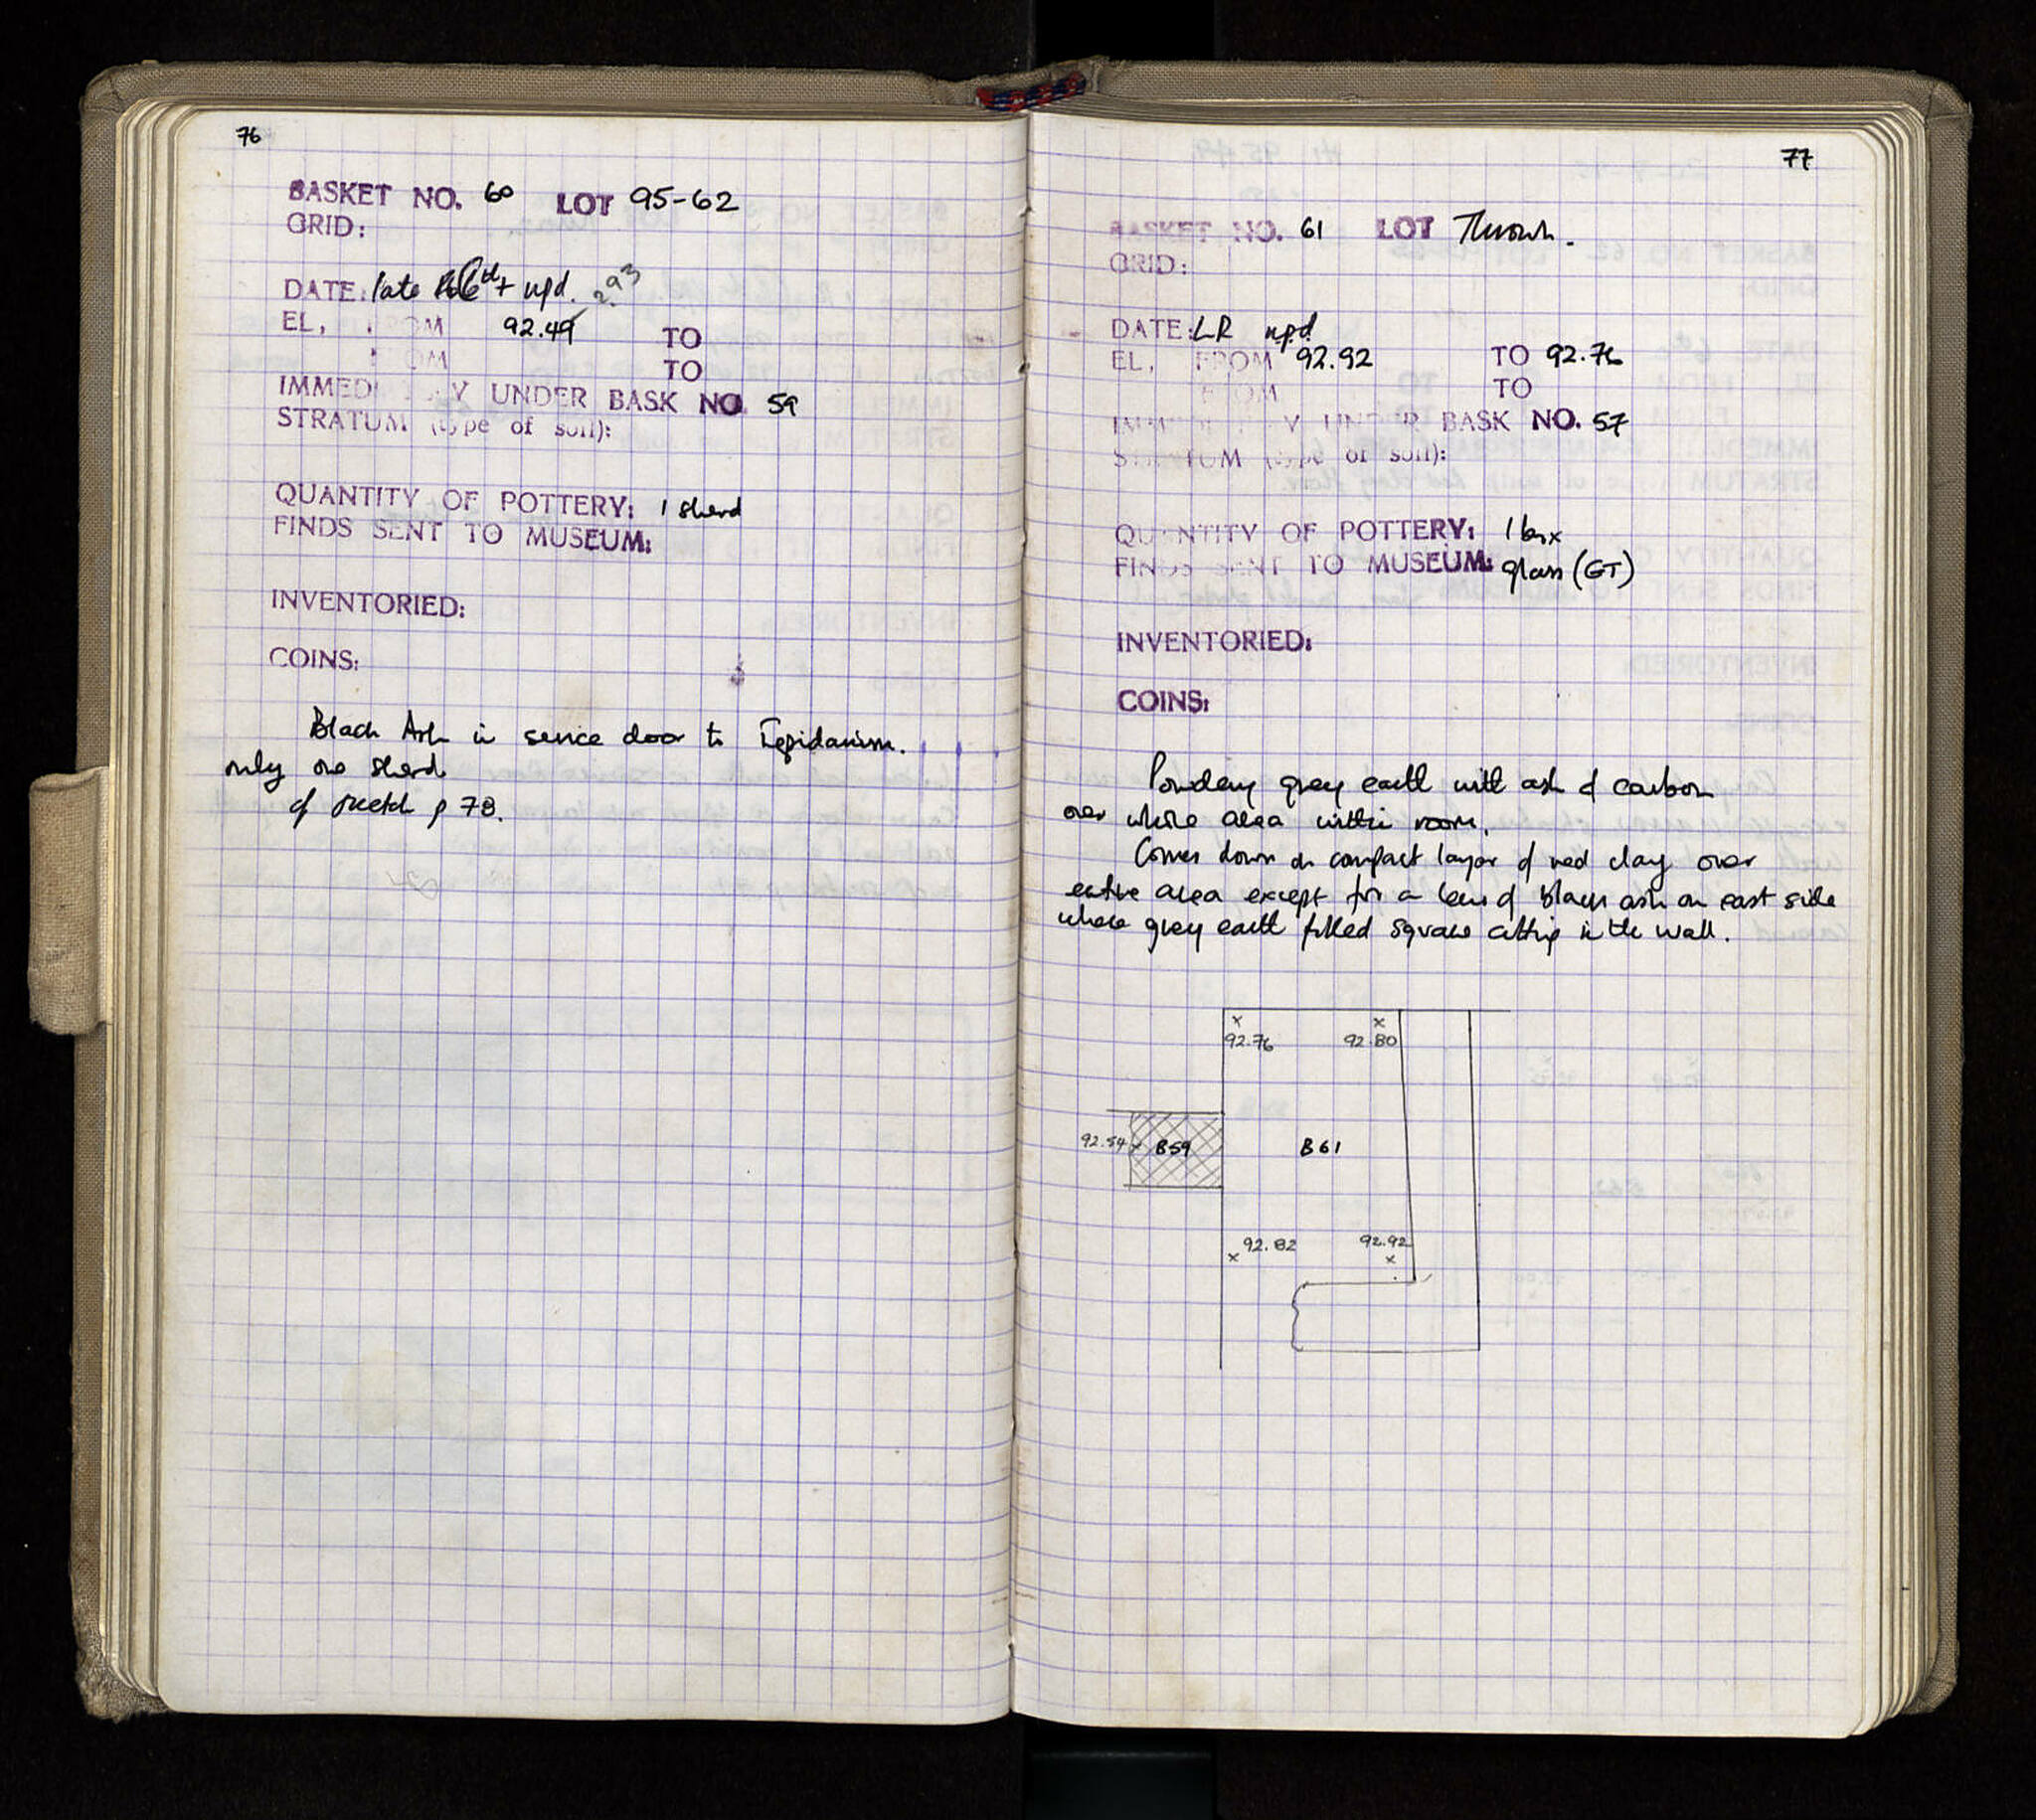 76
BASKET NO. 60 LOT 95-62
GRID:
DATE: late 6th + npd. 2.93
EL, FROM 92.49 TO
FROM TO
IMMEDI Y UNDER BASK NO. 59
STRATUM (type of soil):
QUANTITY OF POTTERY: 1 sherd
FINDS SENT TO MUSEUM:
INVENTORIED:
COINS:
Black Ash in service door to Tepidarium.
only one sherd.
cf sketch p 78.
77
BASKET NO. 61 LOT Thrown.
GRID:
DATE: LR npd
EL, FROM 92.92 TO 92.76
FROM TO
IMM Y UNDER BASK NO. 57
STRATUM (type of soil):
QUANTITY OF POTTERY: 1 box
FINDS SENT TO MUSEUM: glass (GT)
INVENTORIED:
COINS:
Powdery grey earth with ash & carbon
over whole area within room.
Comes down on compact layer of red clay over
entire area except for a lens of black ash on east side
where grey earth filled square cutting in the wall.
92.76 92.80
92.54 B59 B61
92.82 92.92